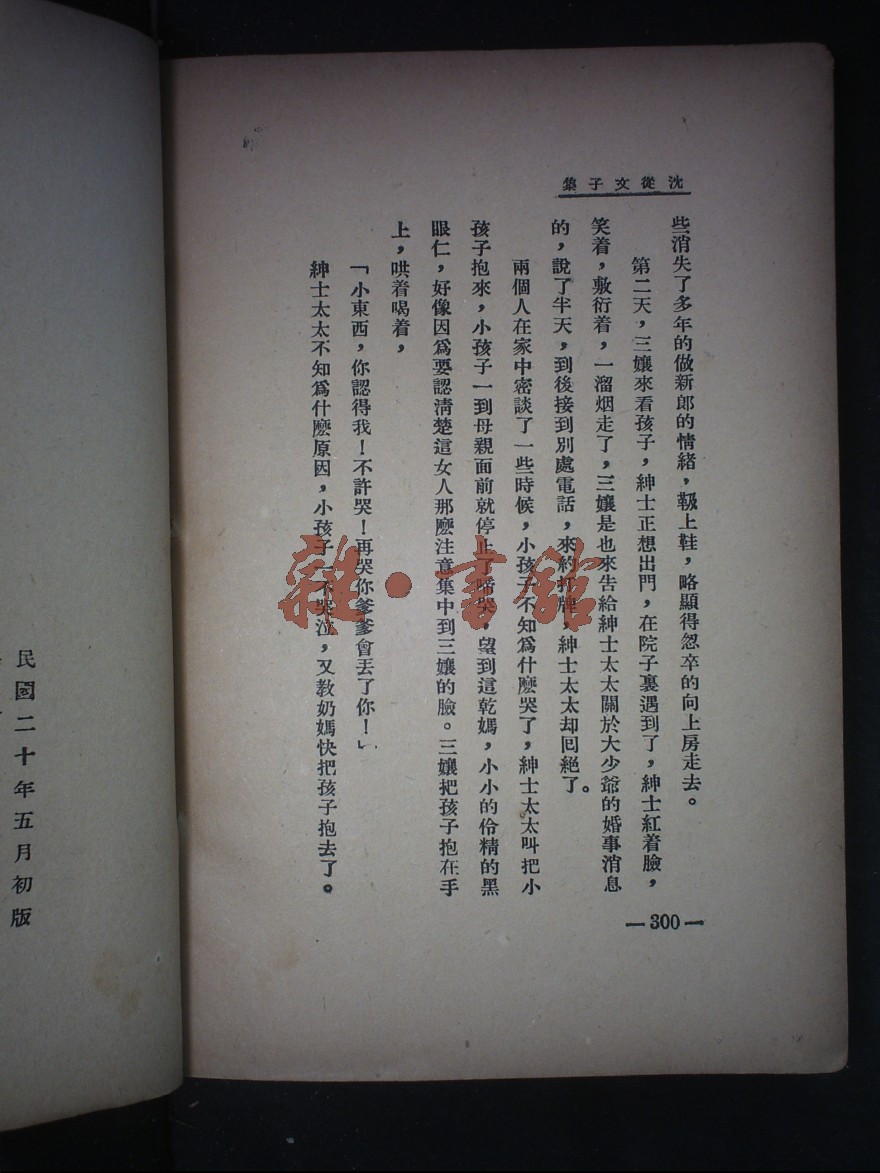 沈從文子集
些消失了多年的做新郎的情緒，靸上鞋，略顯得忽卒的向上房走去。
第二天，三孃來看孩子，紳士正想出門，在院子裏遇到了，紳士紅着臉，
笑着，敷衍着，一溜烟走了，三孃是也來告給紳士太太關於大少爺的婚事消息
的，說了半天，到後接到別處電話，來約打牌，紳士太太却囘絕了。
兩個人在家中密談了一些時候，小孩子不知爲什麽哭了，紳士太太叫把小
孩子抱來，小孩子一到母親面前就停止了啼哭，望到這乾媽，小小的伶精的黑
眼仁，好像因爲要認清楚這女人那麽注意集中到三孃的臉。三孃把孩子抱在手
上，哄着喝着，
「小東西，你認得我！不許哭！再哭你爹爹會丟了你！」
紳士太太不知爲什麽原因，小孩子一不哭泣，又教奶媽快把孩子抱去了。
—300—
民國二十年五月初版
雜·書館